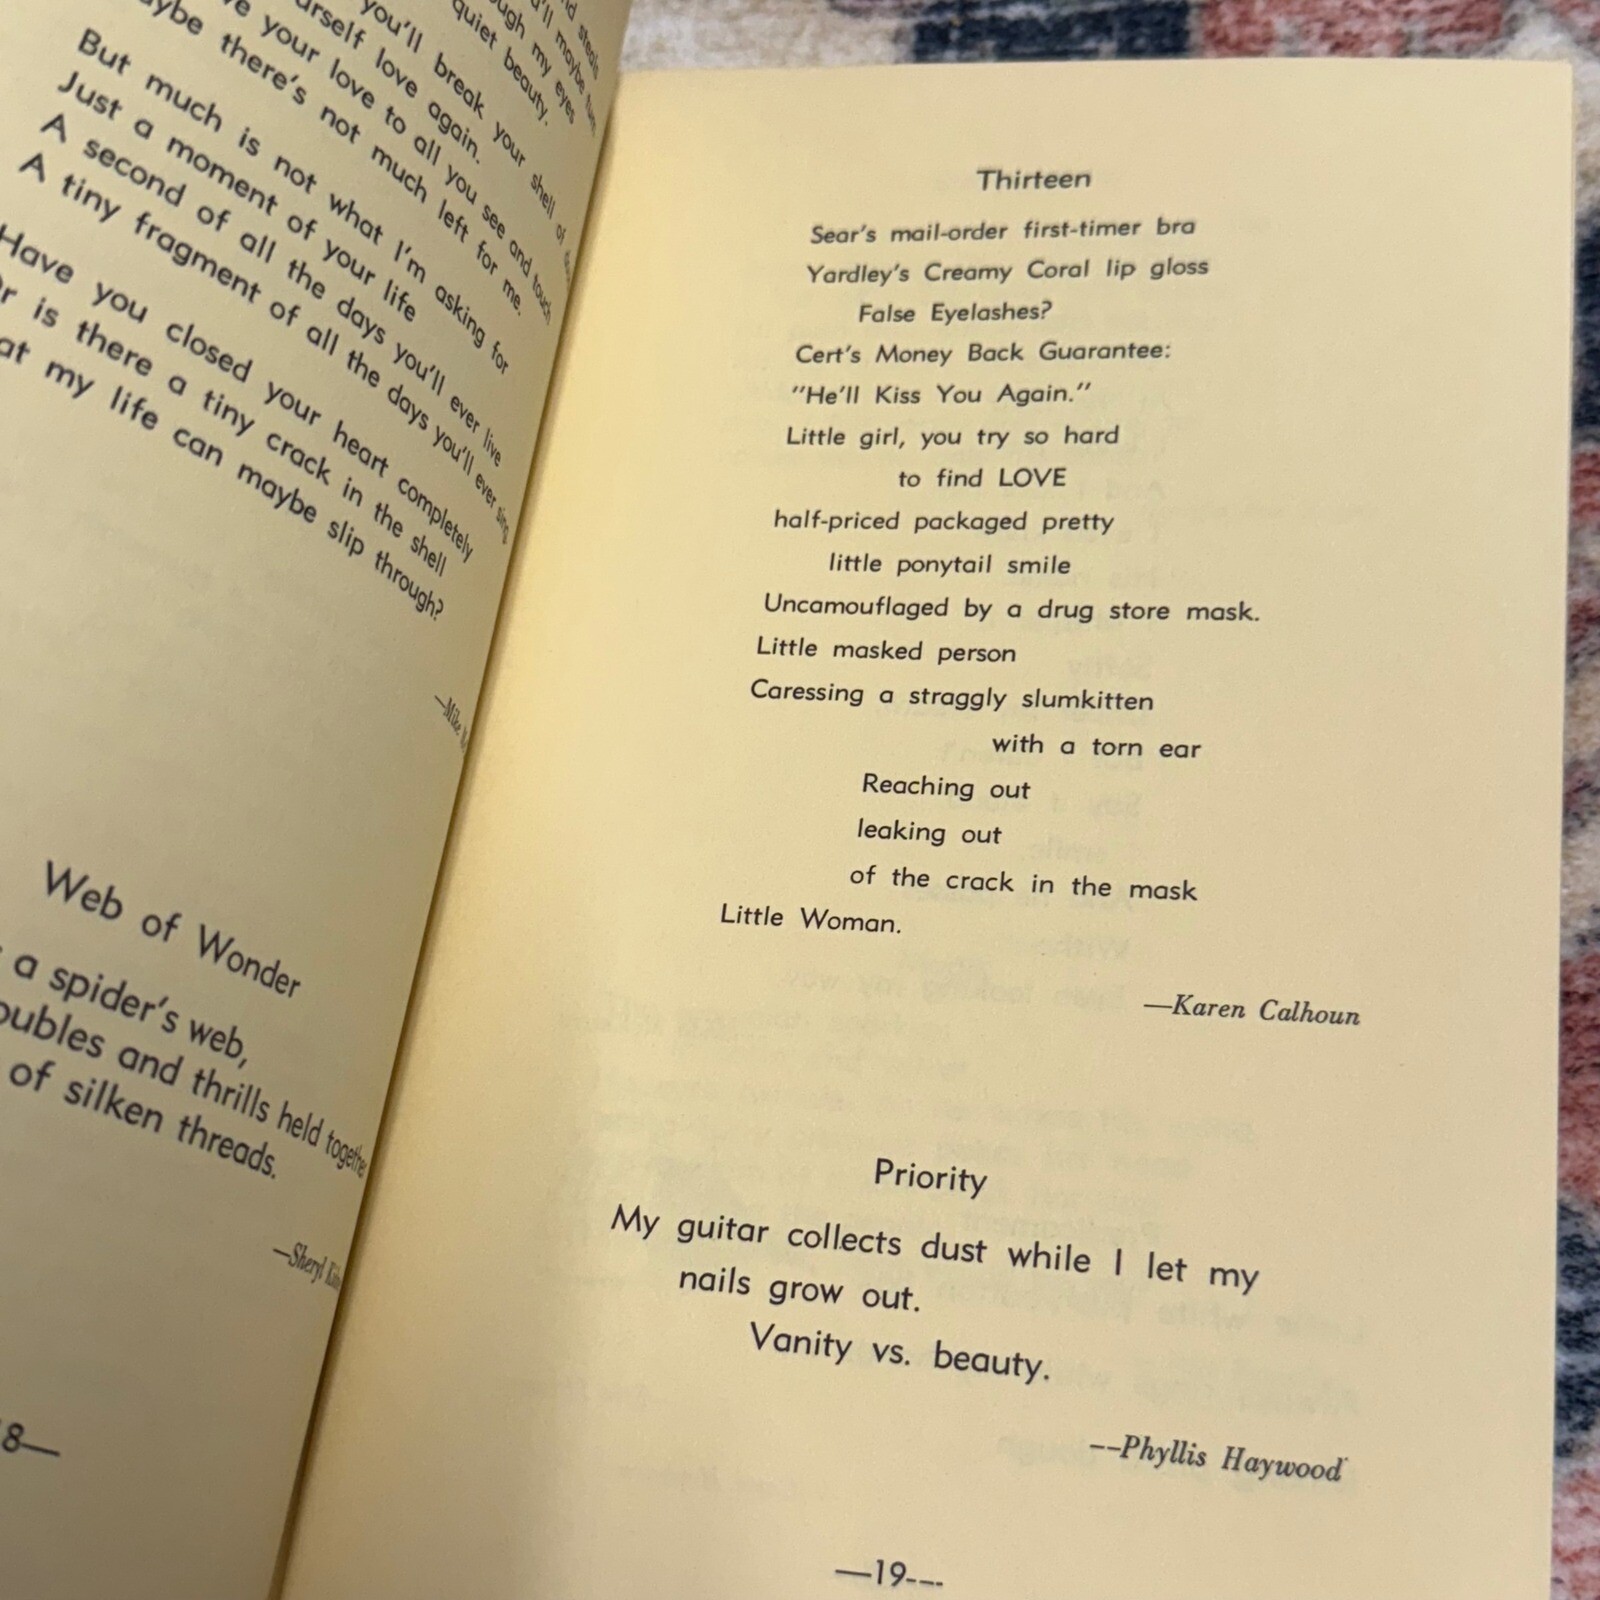 nd steals
you'll maybe turn
ough my eyes
quiet beauty.
you'll break your shell of
urself love again.
ve your love to all you see and touch
aybe there's not much left for me.
But much is not what I'm asking for
Just a moment of your life
A second of all the days you'll ever live
A tiny fragment of all the days you'll ever sing
Have you closed your heart completely
Or is there a tiny crack in the shell
at my life can maybe slip through?
—Mike
Web of Wonder
a spider's web,
oubles and thrills held together
of silken threads.
—Sheryl
18—
Thirteen
Sear's mail-order first-timer bra
Yardley's Creamy Coral lip gloss
False Eyelashes?
Cert's Money Back Guarantee:
"He'll Kiss You Again."
Little girl, you try so hard
to find LOVE
half-priced packaged pretty
little ponytail smile
Uncamouflaged by a drug store mask.
Little masked person
Caressing a straggly slumkitten
with a torn ear
Reaching out
leaking out
of the crack in the mask
Little Woman.
—Karen Calhoun
Priority
My guitar collects dust while I let my
nails grow out.
Vanity vs. beauty.
--Phyllis Haywood
—19---